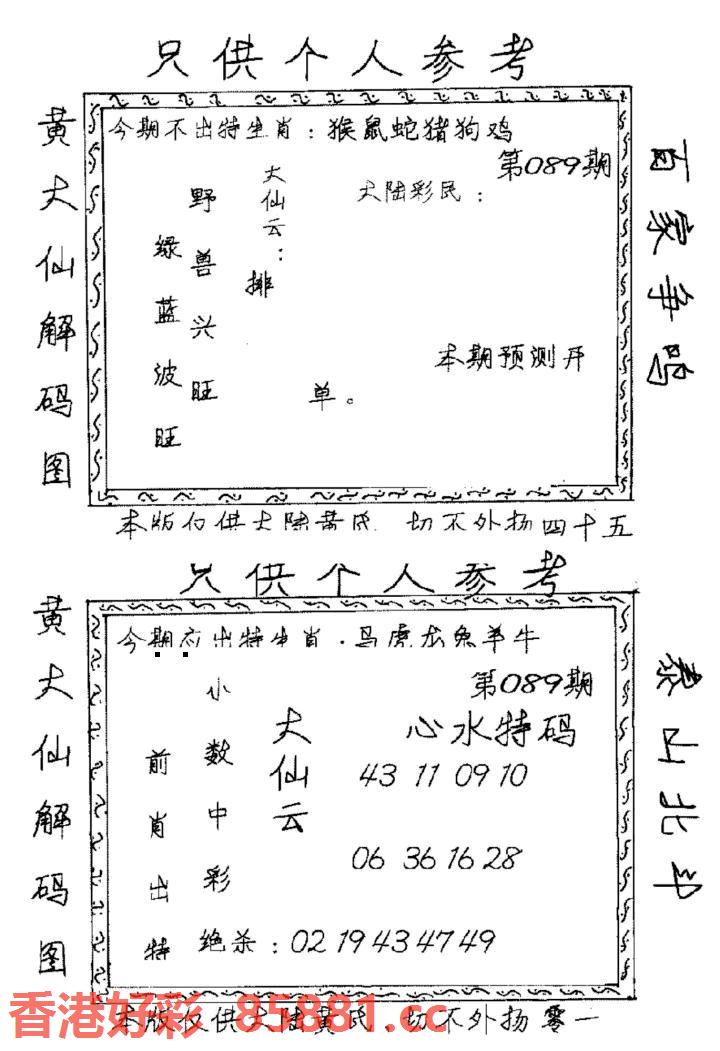 只供个人参考
黄大仙解码图
今期不出特生肖：猴鼠蛇猪狗鸡
第089期
大陆彩民：
大仙云：
排
野兽兴旺
绿蓝波旺
单。
本期预测开
百家争鸣
本版仅供大陆黄民 切不外扬四十五
只供个人参考
黄大仙解码图
今期应出特生肖．马虎龙兔羊牛
第089期
心水特码
大仙云
小数中彩
前肖出特
43 11 09 10
06 36 16 28
绝杀：02 19 43 47 49
泰山北斗
本版仅供大陆黄民．切不外扬零一
香港好彩 85881.cc